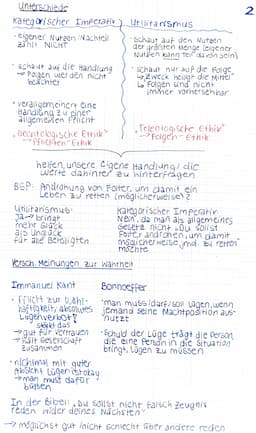 Unterschiede
2
Kategorischer Imperativ
Utilitarismus
· eigener Nutzen/Nachteil
zählt NICHT
· schaut auf die Handlung
→ Folgen werden nicht
beachtet
· verallgemeinert eine
Handlung zu einer
allgemeinen Pflicht
"Deontologische Ethik"
→ Pflichten-Ethik
· schaut auf den Nutzen
der größten Menge (eigener
Nutzen kann Teil davon sein)
· schaut nur auf die Folge
→ "Zweck heiligt die Mittel"
↳ Folgen sind nicht
immer vorhersehbar
"Teleologische Ethik"
→ Folgen-Ethik
helfen, unsere eigene Handlung/die
Werte dahinter zu hinterfragen
BSP: Androhung von Folter, um damit ein
Leben zu retten (möglicherweise)?
Utilitarismus:
Ja → bringt
mehr Glück
als Unglück
für alle Beteiligten
Kategorischer Imperativ
Nein, da man als allgemeines
Gesetz nicht "Du sollst
Folter androhen, um damit
möglicherweise jmd. zu retten"
möchte
Versch. Meinungen zur Wahrheit
Immanuel Kant
· Pflicht zur Wahr-
haftigkeit, absolutes
Lügenverbot!
stärkt das
→ gut für Vertrauen
→ hält Gesellschaft
zusammen
· nichtmal mit guter
Absicht Lügen ist okay
→ man muss dafür
büßen
Bonhoeffer
· man muss/darf/soll lügen, wenn
jemand seine Machtposition aus-
nutzt
· Schuld der Lüge trägt die Person,
die eine Person in die Situation
bringt, lügen zu müssen
In der Bibel: "Du sollst nicht falsch Zeugnis
reden wider deines Nächsten"
→ möglichst gut/nicht schlecht über andere reden